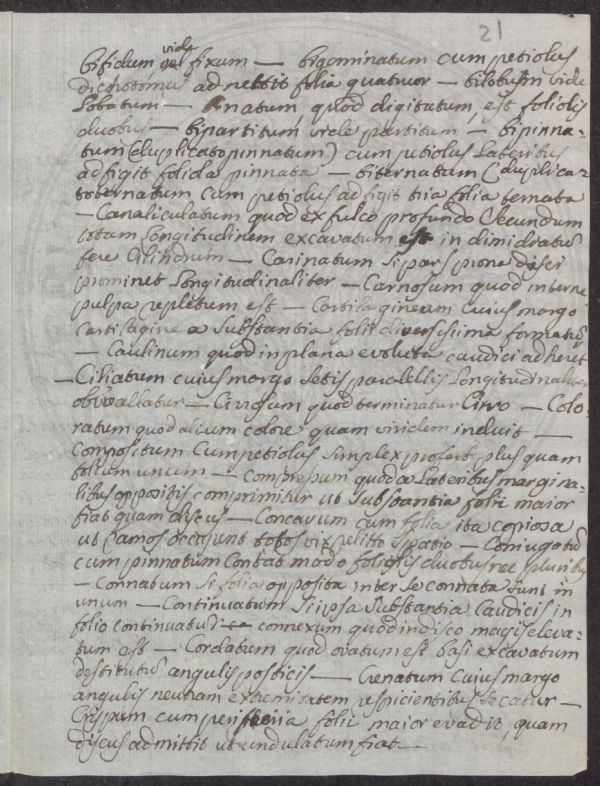 21
bifidum vide fixum — bigeminatum cum petiolus
dichotomus ad nectit folia quatuor — bilobum vide
Lobatum — binatum, quod digitatum, est foliolis
duobus — bipartitum vide partitum — bipinna-
tum (duplicato pinnatum) cum petiolus Lateribus
ad figit foliola pinnata — biternatum (duplica-
to ternatum cum petiolus ad figit tria folia ternata
— Canaliculatum quod ex sulco profundo Secundum
totam Longitudinem excavatum est in dimidiatū
fere Cilindrum — Carinatum Si pars prona disci
prominet Longitudinaliter — Carnosum quod interne
pulpa repletum est — Cartilagineum Cuius margo
Cartilagine a Substantia folii diverssima formatur
— Caulinum quod in plana evoluta caudici adheret
— Ciliatum cuius margo Setis paralellis Longitudinaliter
obvallatur — Cirrosum quod terminatur Cirro — Colo-
ratum quod alium colorē quam viridem induit —
Compositum Cum petiolus Simplex profert plus quam
folium unum — Compressum quod a Lateribus margina-
libus oppositis comprimitur ut Substantia folii maior
fiat quam discus — Concavum cum folia ita copiosa
ut Ramos occasunt totos vix relicto Spatio — Coniugatū
cum pinnatum Constat modo foliolis duobus nec pluribus
— Connatum Si folia opposita inter Se connata Sunt in
unum — Continuatum Si ipsa Substantia Caudicis in
folio continuatur — connexum quod in disco magis eleva-
tum est — Cordatum quod ovatum est basi excavatum
destitutū angulis posticis — Crenatum Cuius margo
angulis neutram extremitatem respicientibus Secatur —
Crispum cum periferia folii maior evadit, quam
discus admittit ut undulatum fiat —